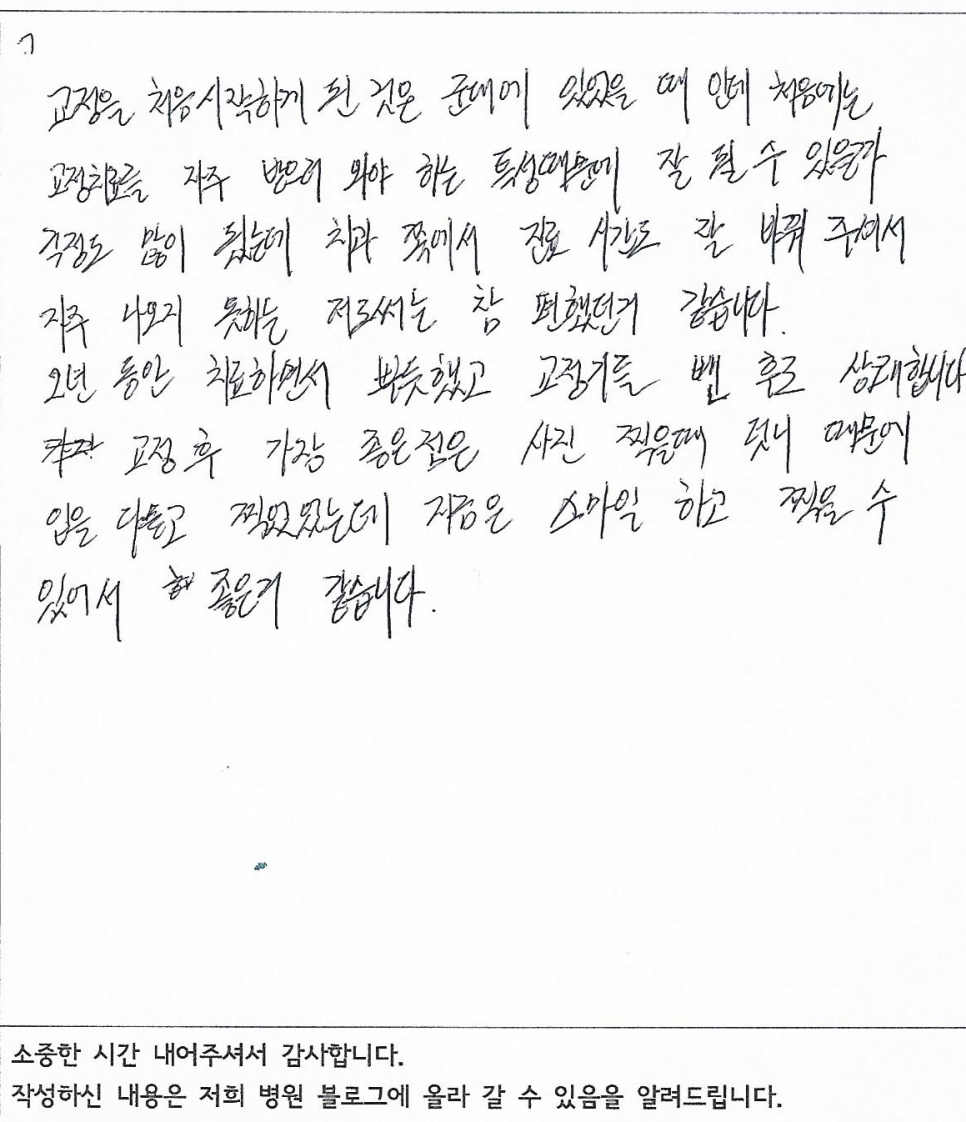 교정을 처음시작하게 된 것은 군대에 있었을 때 인데 처음에는
교정치료를 자주 받으러 와야 하는 특성때문에 잘 될 수 있을까
걱정도 많이 됬는데 치과 쪽에서 진료 시간도 잘 바꿔 주어서
자주 나오지 못하는 저로써는 참 편했던거 같습니다.
2년 동안 치료하면서 뿌듯했고 교정기를 뺀 후로 상쾌합니다
교정 후 가장 좋은점은 사진 찍을때 덧니 때문에
입을 다물고 찍었었는데 지금은 스마일 하고 찍을 수
있어서 좋은거 같습니다.
소중한 시간 내어주셔서 감사합니다.
작성하신 내용은 저희 병원 블로그에 올라 갈 수 있음을 알려드립니다.